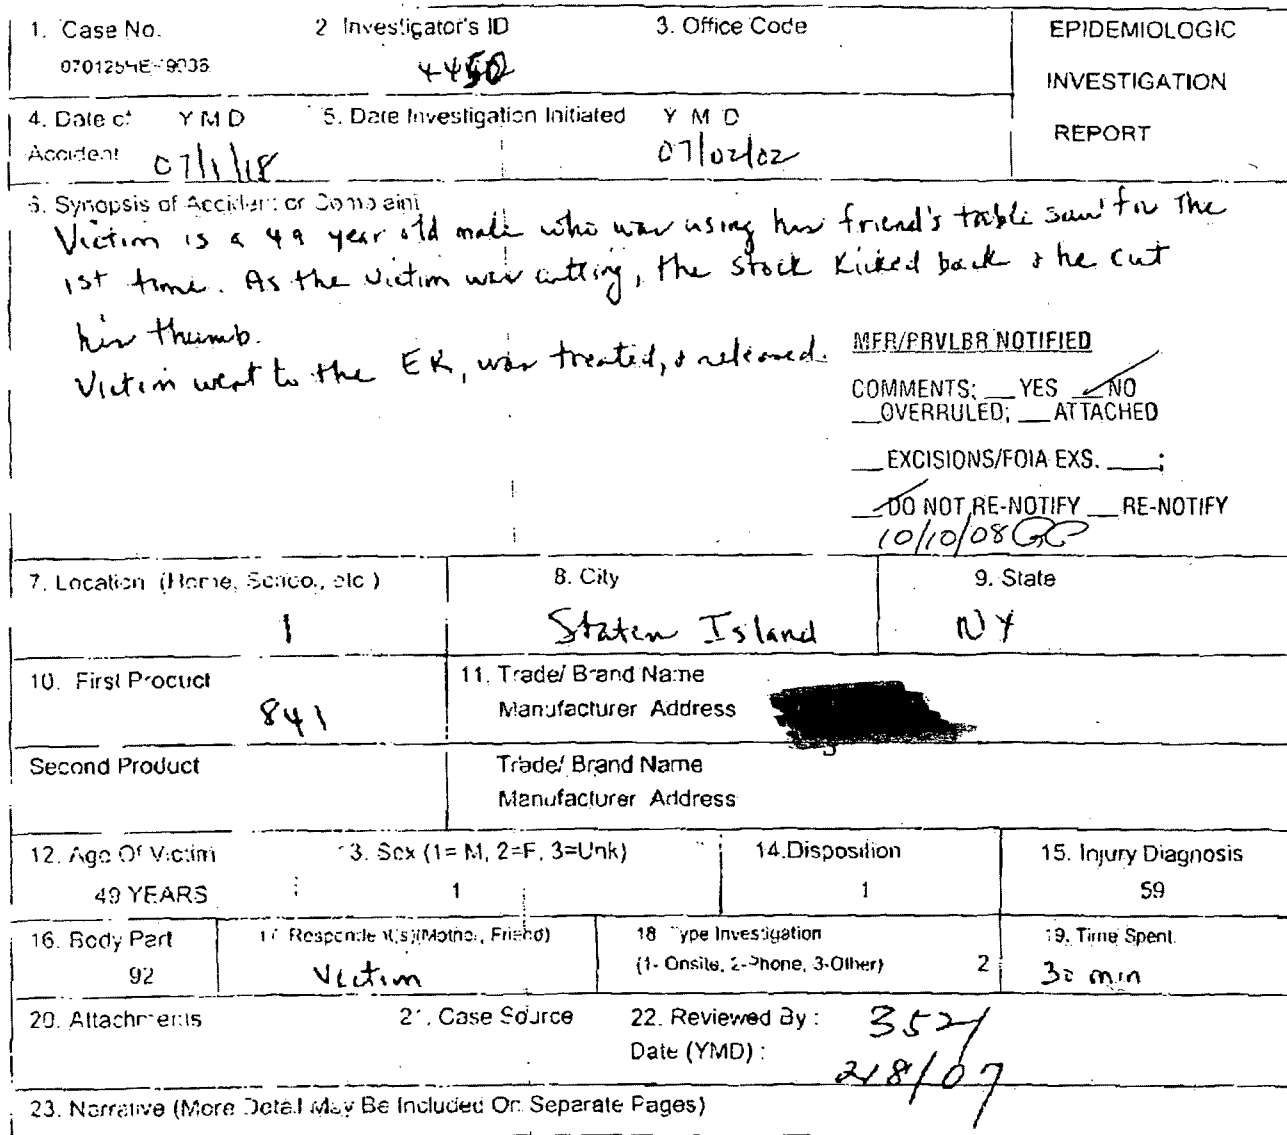 1. Case No. 2 Investigator's ID 3. Office Code EPIDEMIOLOGIC
4450
INVESTIGATION
4. Date of Y M D 5. Date Investigation Initiated Y M D
REPORT
Accident 07/1/18 07/02/02
6. Synopsis of Accident or Complaint
Victim is a 49 year old male who was using his friend's table saw for the
1st time. As the victim was cutting, the stock kicked back & he cut
his thumb.
Victim went to the ER, was treated, & released.
MFR/PRVLBR NOTIFIED
COMMENTS; __ YES __ NO
__ OVERRULED; __ ATTACHED
__ EXCISIONS/FOIA EXS. ____;
__ DO NOT RE-NOTIFY __ RE-NOTIFY
10/10/08
7. Location (Home, School, etc.) 8. City 9. State
1 Staten Island NY
10. First Product 11. Trade/ Brand Name
841 Manufacturer Address
Second Product Trade/ Brand Name
Manufacturer Address
12. Age Of Victim 13. Sex (1= M, 2=F, 3=Unk) 14.Disposition 15. Injury Diagnosis
49 YEARS 1 1 59
16. Body Part 17 Respondent(s)(Mother, Friend) 18 Type Investigation 19. Time Spent
92 Victim (1- Onsite, 2-Phone, 3-Other) 2 30 min
20. Attachments 21. Case Source 22. Reviewed By : 352
Date (YMD) : 2/8/07
23. Narrative (More Detail May Be Included On Separate Pages)